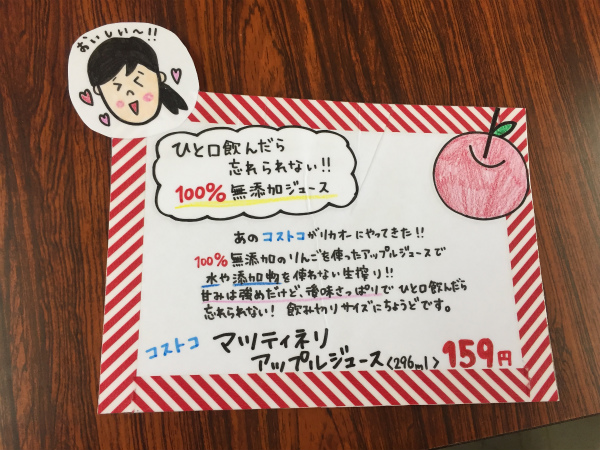 おいしい〜!!
ひと口飲んだら
忘れられない!!
100%無添加ジュース
あのコストコがリカオーにやってきた!!
100%無添加のりんごを使ったアップルジュースで
水や添加物を使わない生搾り!!
甘みは強めだけど、後味さっぱりでひと口飲んだら
忘れられない! 飲み切りサイズにちょうどです。
コストコ マツティネリ
アップルジュース〈296ml〉159円